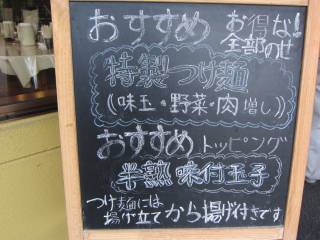 おすすめ
お得な!
全部のせ
特製つけ麺
(味玉・野菜・肉増し)
おすすめトッピング
半熟味付玉子
つけ麺には
揚げ立てから揚げ付きです